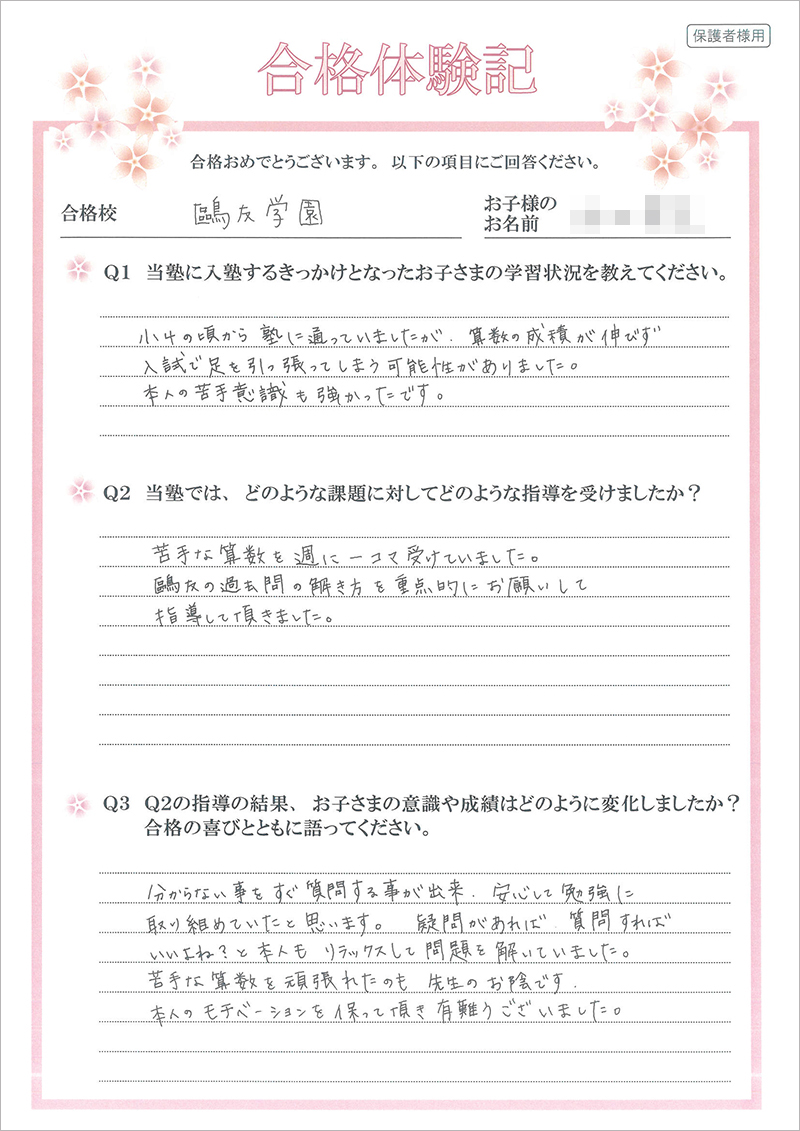 保護者様用
合格体験記
合格おめでとうございます。以下の項目にご回答ください。
合格校 鷗友学園
お子様の
お名前
Q1 当塾に入塾するきっかけとなったお子さまの学習状況を教えてください。
小4の頃から 塾に通っていましたが、算数の成積が伸びず
入試で足を引っ張ってしまう可能性がありました。
本人の苦手意識も強かったです。
Q2 当塾では、どのような課題に対してどのような指導を受けましたか？
苦手な算数を週に一コマ受けていました。
鷗友の過去問の解き方を重点的にお願いして
指導して頂きました。
Q3 Q2の指導の結果、お子さまの意識や成績はどのように変化しましたか？
合格の喜びとともに語ってください。
分からない事をすぐ質問する事が出来、安心して勉強に
取り組めていたと思います。 疑問があれば、質問すれば
いいよね？と本人も リラックスして問題を解いていました。
苦手な算数を頑張れたのも 先生のお陰です。
本人のモチベーションを保って頂き有難うございました。